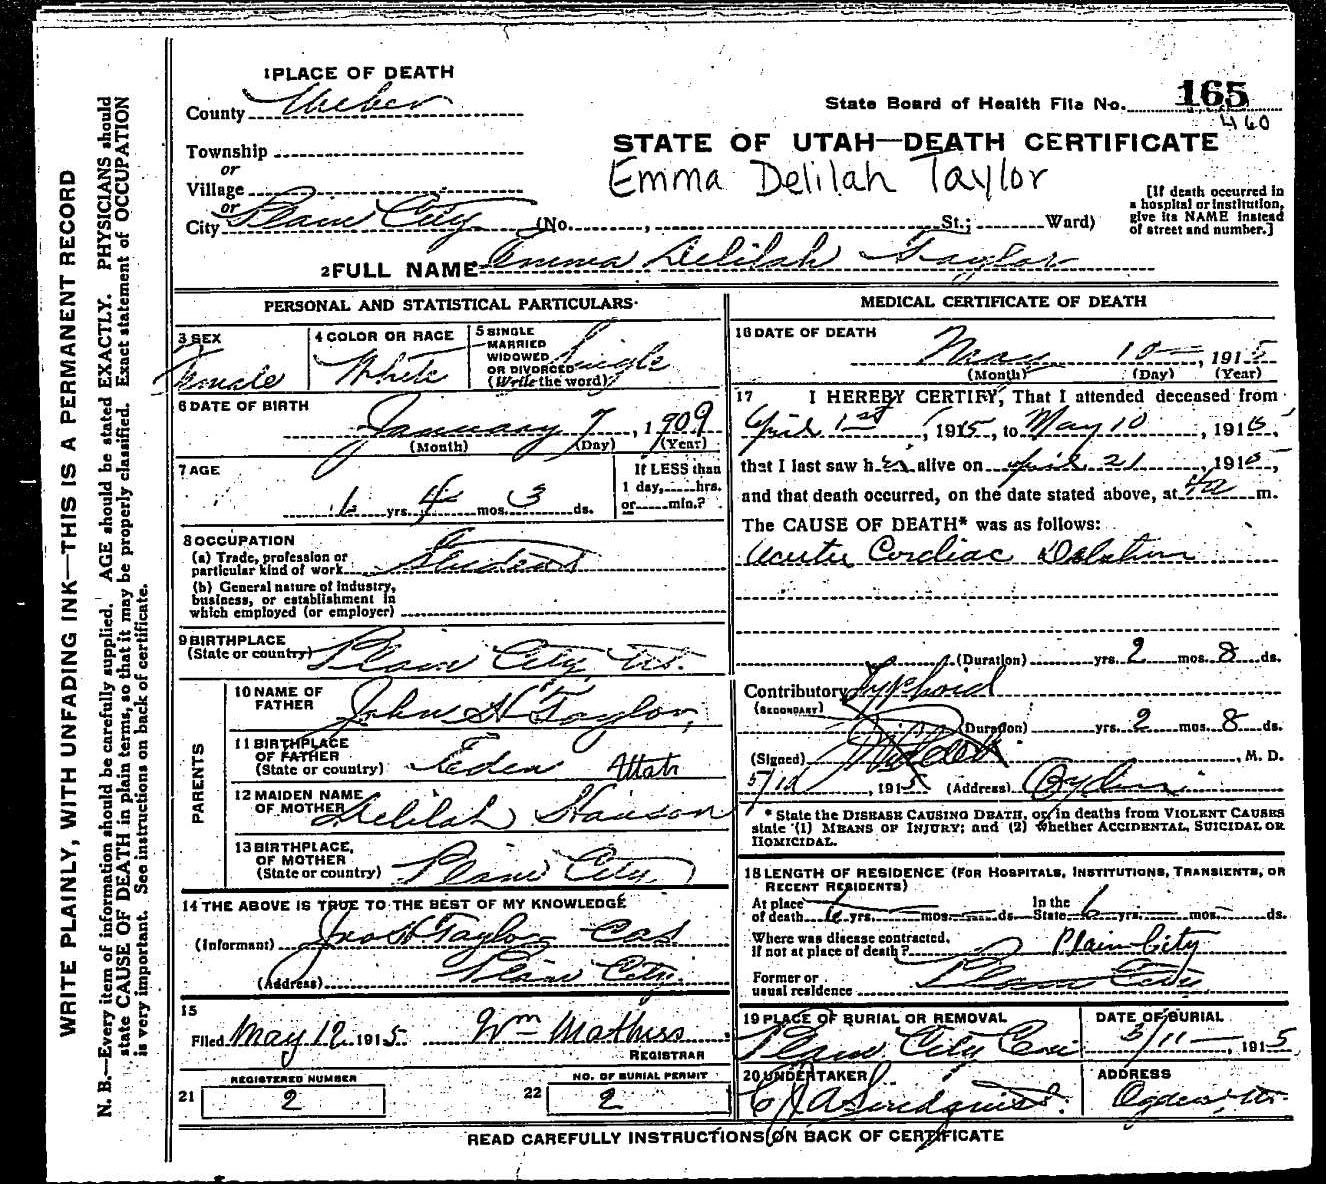 1 PLACE OF DEATH
County Weber
Township
or
Village
or
City Plain City (No. , St.; Ward)
State Board of Health File No. 165
460
STATE OF UTAH—DEATH CERTIFICATE
Emma Delilah Taylor
[If death occurred in
a hospital or institution,
give its NAME instead
of street and number.]
2 FULL NAME Emma Delilah Taylor
WRITE PLAINLY, WITH UNFADING INK—THIS IS A PERMANENT RECORD
N. B.—Every item of information should be carefully supplied. AGE should be stated EXACTLY. PHYSICIANS should
state CAUSE OF DEATH in plain terms, so that it may be properly classified. Exact statement of OCCUPATION
is very important. See instructions on back of certificate.
PERSONAL AND STATISTICAL PARTICULARS
3 SEX
Female
4 COLOR OR RACE
White
5 SINGLE
MARRIED
WIDOWED
OR DIVORCED
(Write the word)
Single
6 DATE OF BIRTH
January 7, 1909
(Month) (Day) (Year)
7 AGE
6 yrs. 4 mos. 3 ds.
If LESS than
1 day, hrs.
or min.?
8 OCCUPATION
(a) Trade, profession or
particular kind of work Student
(b) General nature of industry,
business, or establishment in
which employed (or employer)
9 BIRTHPLACE
(State or country) Plain City, Ut.
PARENTS
10 NAME OF
FATHER
John H Taylor
11 BIRTHPLACE
OF FATHER
(State or country) Eden Utah
12 MAIDEN NAME
OF MOTHER Delilah Hanson
13 BIRTHPLACE,
OF MOTHER
(State or country) Plain City
14 THE ABOVE IS TRUE TO THE BEST OF MY KNOWLEDGE
(Informant) Jno H Taylor
(Address) Plain City
15
Filed May 12 1915 Wm
REGISTRAR
21 REGISTERED NUMBER
2
22 NO. OF BURIAL PERMIT
2
MEDICAL CERTIFICATE OF DEATH
16 DATE OF DEATH
May 10, 1915
(Month) (Day) (Year)
17 I HEREBY CERTIFY, That I attended deceased from
April 1st, 1915, to May 10, 1915,
that I last saw her alive on April 21, 1915,
and that death occurred, on the date stated above, at 4a m.
The CAUSE OF DEATH* was as follows:
Acute Cardiac Dilatation
(Duration) yrs. 2 mos. 8 ds.
Contributory Typhoid
(SECONDARY)
(Duration) yrs. 2 mos. 8 ds.
(Signed) , M. D.
5/12, 1915 (Address) Ogden
* State the DISEASE CAUSING DEATH, or, in deaths from VIOLENT CAUSES
state (1) MEANS OF INJURY; and (2) whether ACCIDENTAL, SUICIDAL OR
HOMICIDAL.
18 LENGTH OF RESIDENCE (FOR HOSPITALS, INSTITUTIONS, TRANSIENTS, OR
RECENT RESIDENTS)
At place In the
of death 6 yrs. mos. ds. State 6 yrs. mos. ds.
Where was disease contracted,
if not at place of death? Plain City
Former or
usual residence Plain City
19 PLACE OF BURIAL OR REMOVAL
Plain City Cem
DATE OF BURIAL
5/11, 1915
20 UNDERTAKER
C J A Lindquist
ADDRESS
Ogden, Ut.
READ CAREFULLY INSTRUCTIONS ON BACK OF CERTIFICATE